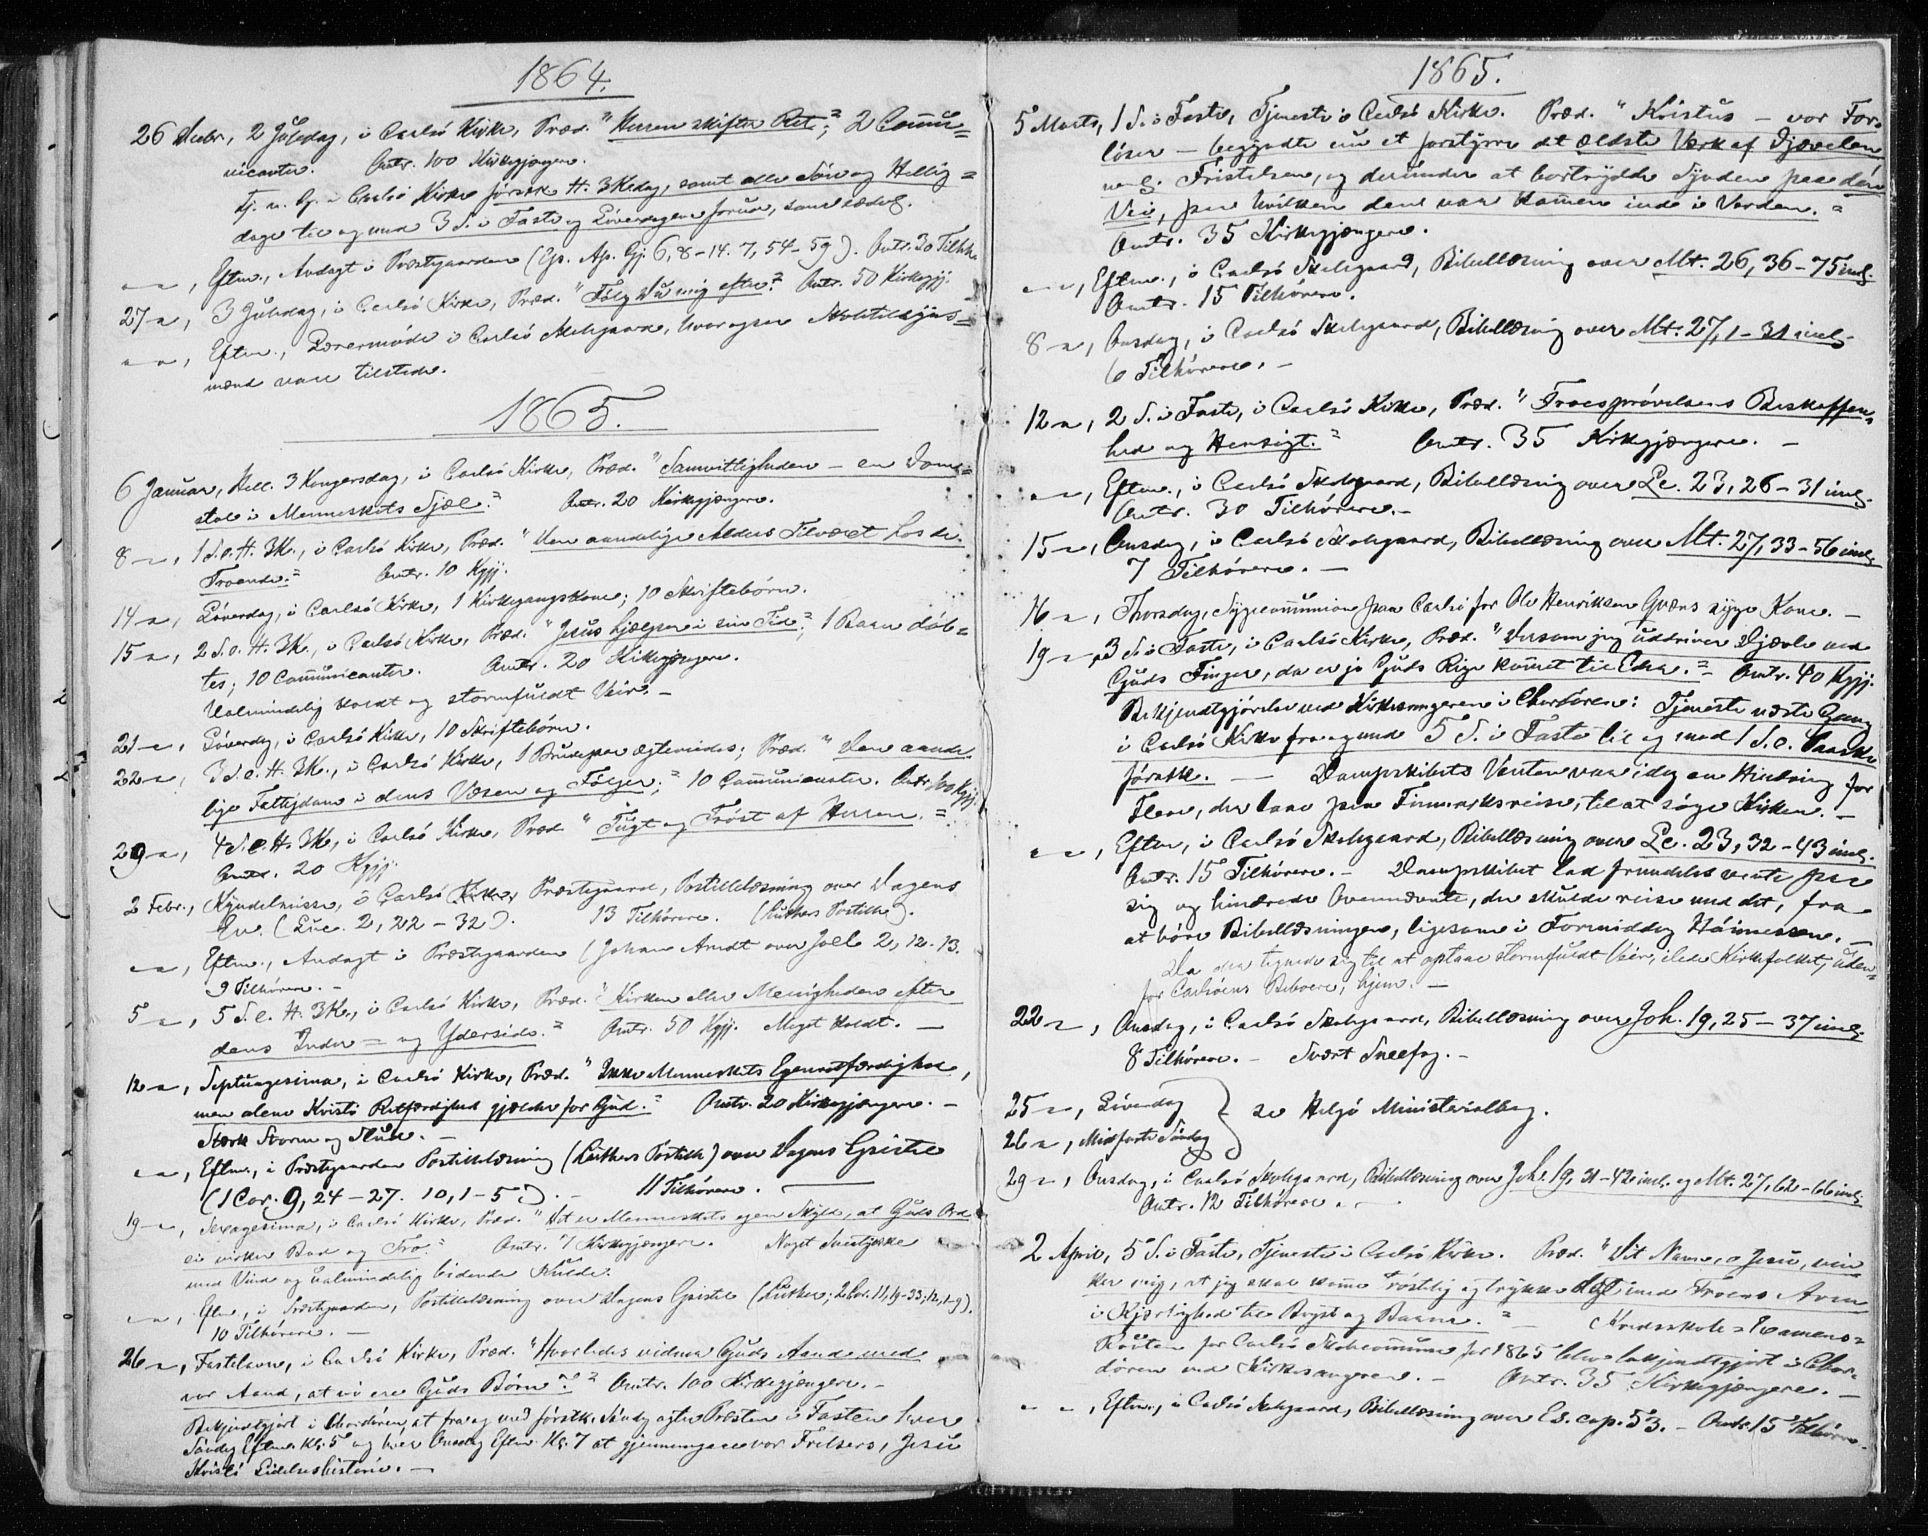 1864.
26 Decbr., 2 Juledag, i Carlsö Kirke, Præd. "Herren skifter Ret"; 2 Commu-
nicanter. Omtr. 100 Kirkegjængere.
Tj. n. G. i Carlsö Kirke förstk. H. 3 K.dag, samt alle Søn- og Hellig-
dage til og med 3 S. i Faste og Löverdagene foruden, som sædvl.
— , Eftm., Andagt i Præstgaarden (Ep. Ap. Gj. 6, 8-14. 7, 54-59). Omtr. 30 Tilhh.
27 — , 3 Juledag, i Carlsö Kirke, Præd. "Fölg Du mig efter." Omtr. 50 Kirkegjj.
— , Eftm., Lærermöde i Carlsö Skolegaard, hvor ogsaa Skoletilsyns-
mænd vare tilstede.
1865.
6 Januar, Hell. 3 Kongersdag, i Carlsö Kirke, Præd. "Samvittigheden — en Dom-
stol i Menneskets Sjæl." Omtr. 20 Kirkegjængere.
8 — , 1 S. e. H. 3 K., i Carlsö Kirke, Præd. "Den aandelige Alders Tilvæxt hos de
Troende." Omtr. 10 Kgjj.
14 — , Löverdag, i Carlsö Kirke, 1 Kirkegangskone; 10 Skriftebörn.
15 — , 2 S. e. H. 3 K., i Carlsö Kirke, Præd. "Jesus hjælper i sin Tid"; 1 Barn döb-
tes; 10 Communicanter. Omtr. 20 Kirkegjængere.
Ualmindelig koldt og stormfuldt Veir. —
21 — , Löverdag, i Carlsö Kirke, 10 Skriftebörn.
22 — , 3 S. e. H. 3 K., i Carlsö Kirke, 1 Brudepar ægteviedes; Præd. "Den aande-
lige Fattigdom i dens Væsen og Fölger;" 10 Communicanter. Omtr. Kgjj.
29 — , 4 S. e. H. 3 K., i Carlsö Kirke, Præd. "Tugt og Tröst af Herren."
Omtr. 20 Kgjj.
2 Febr., Kyndelmisse, i Carlsö Præstegaard, Postillelæsning over Dagens
Ev. (Luc. 2, 22-32). 13 Tilhörere. (Luthers Postille).
— , Eftm., Andagt i Præstegaarden (Johan Arndt over Joel 2, 12-13.
9 Tilhörere. —
5 — , 5 S. e. H. 3 K., i Carlsö Kirke, Præd. "Kirken eller Menigheden efter
dens Inder- og Yderside." Omtr. 50 Kgjj. Meget koldt. —
12 — , Septuagesima, i Carlsö Kirke, Præd. "Ikke Menneskets Egenretfærdighed,
men alene Kristi Retfærdighed gjælder for Gud." Omtr. 20 Kirkegjængere. —
Stærk Storm og Slud. —
— , Eftm., i Præstgaarden Postillelæsning (Luthers Postille) over Dagens Epistel
(1 Cor. 9, 24-27. 10, 1-5). — 11 Tilhörere. —
19 — , Sexagesima, i Carlsö Kirke, Præd. "Det er Menneskets egen Skyld, at Guds Ord
ei virker Bod og Tro." Omtr. 7 Kirkegjængere. Noget Sneetykke
med Vind og ualmindelig bidende Kulde.
— , Eftm., i Præstgaarden, Postillelæsning over Dagens Epistel (Luther; 2 Cor. 11, 19-33; 12, 1-9).
10 Tilhörere. —
26 — , Fastelavn, i Carlsö Kirke, Præd. "Hvorledes vidner Guds Aand med
vor Aand, at vi ere Guds Börn?" Omtr. 100 Kirkegjængere. —
Bekjendtgjört i Chordören, at fra og med förstk. Söndag agter Præsten i Fasten hver
Söndag Efterm. Kl. 5 og hver Onsdag Eftm. Kl. 7 at gjennemgaae vor Frelsers, Jesu
Kristi Lidelseshistorie. —
1865.
5 Marts, 1 S. i Faste, Tjeneste i Carlsö Kirke. Præd. "Kristus — vor For-
löser — begyndte med at forstyrre det ældste Værk af Djævelen
nl. Fristelsen, og derunder at bortrydde Synden paa den
Vei, paa hvilken den var kommen ind i Verden."
Omtr. 35 Kirkegjængere.
— , Eftm., i Carlsö Skolegaard, Bibellæsning over Mt. 26, 36-75 incl.
Omtr. 15 Tilhörere.
8 — , Onsdag, i Carlsö Skolegaard, Bibellæsning over Mt. 27, 1-31 incl.
6 Tilhörere. —
12 — , 2 S. i Faste, i Carlsö Kirke, Præd. "Troesprövelsens Beskaffen-
hed og Hensigt." Omtr. 35 Kirkegjængere. —
— , Eftm., i Carlsö Skolegaard, Bibellæsning over Lc. 23, 26-31 incl.
Omtr. 30 Tilhörere. —
15 — , Onsdag, i Carlsö Skolegaard, Bibellæsning over Mt. 27, 33-56 incl.
7 Tilhörere. —
16 — , Thorsdag, Sygecommunion paa Carlsö for Ole Henriksen Qvæns syge Kone. —
19 — , 3 S. i Faste, i Carlsö Kirke, Præd. "Dersom jeg uddriver Djævle ved
Guds Finger, da er jo Guds Rige kommet til Eder." Omtr. 40 Kgjj.
Bekjendtgjörelse ved Kirkesangeren i Chordören: Tjeneste næste Gang
i Carlsö Kirke fra og med 5 S. i Faste til og med 1 S. e. Paaske
förstk. — Dampskibets Venten var idag en Hindring for
Flere, der laae paa Finmarksreise, til at söge Kirken. —
— , Eftm., i Carlsö Skolegaard, Bibellæsning over Lc. 23, 32-43 incl.
Omtr. 15 Tilhörere. — Dampskibet lod fremdeles vente paa
sig og hindrede Ovennævnte, der skulde reise med det, fra
at höre Bibellæsningen, ligesom i Formiddag Höimessen. —
Da det tegnede sig til at optaae stormfuldt Veir, ilede Kirkefolket, uden-
for Carlsöens Beboere, hjem. —
22 — , Onsdag, i Carlsö Skolegaard, Bibellæsning over Joh. 19, 25-37 incl.
8 Tilhörere. — Svært Sneefog. —
25 — , Löverdag } se Helgö Ministerialbog.
26 — , Midfaste Söndag
29 — , Onsdag, i Carlsö Skolegaard, Bibellæsning over Joh. 19, 31-42 incl. og Mt. 27, 62-66 incl.
Omtr. 12 Tilhörere. —
2 April, 5 S. i Faste, Tjeneste i Carlsö Kirke. Præd. "Dit Navn, o Jesu, vin-
ker mig, at jeg skal komme tröstelig og trykke Dig med Troens Arm
i Kjærlighed til Bryst og Barm." — (Kredsskole-Examens-
Routen for Carlsö Skolecommune for 1865 blev bekjendtgjort i Chor-
dören ved Kirkesangeren. — Omtr. 35 Kirkegjængere. —
— , Eftm., i Carlsö Skolegaard, Bibellæsning over Es. cap. 53. — Omtr. 15 Tilhörere.